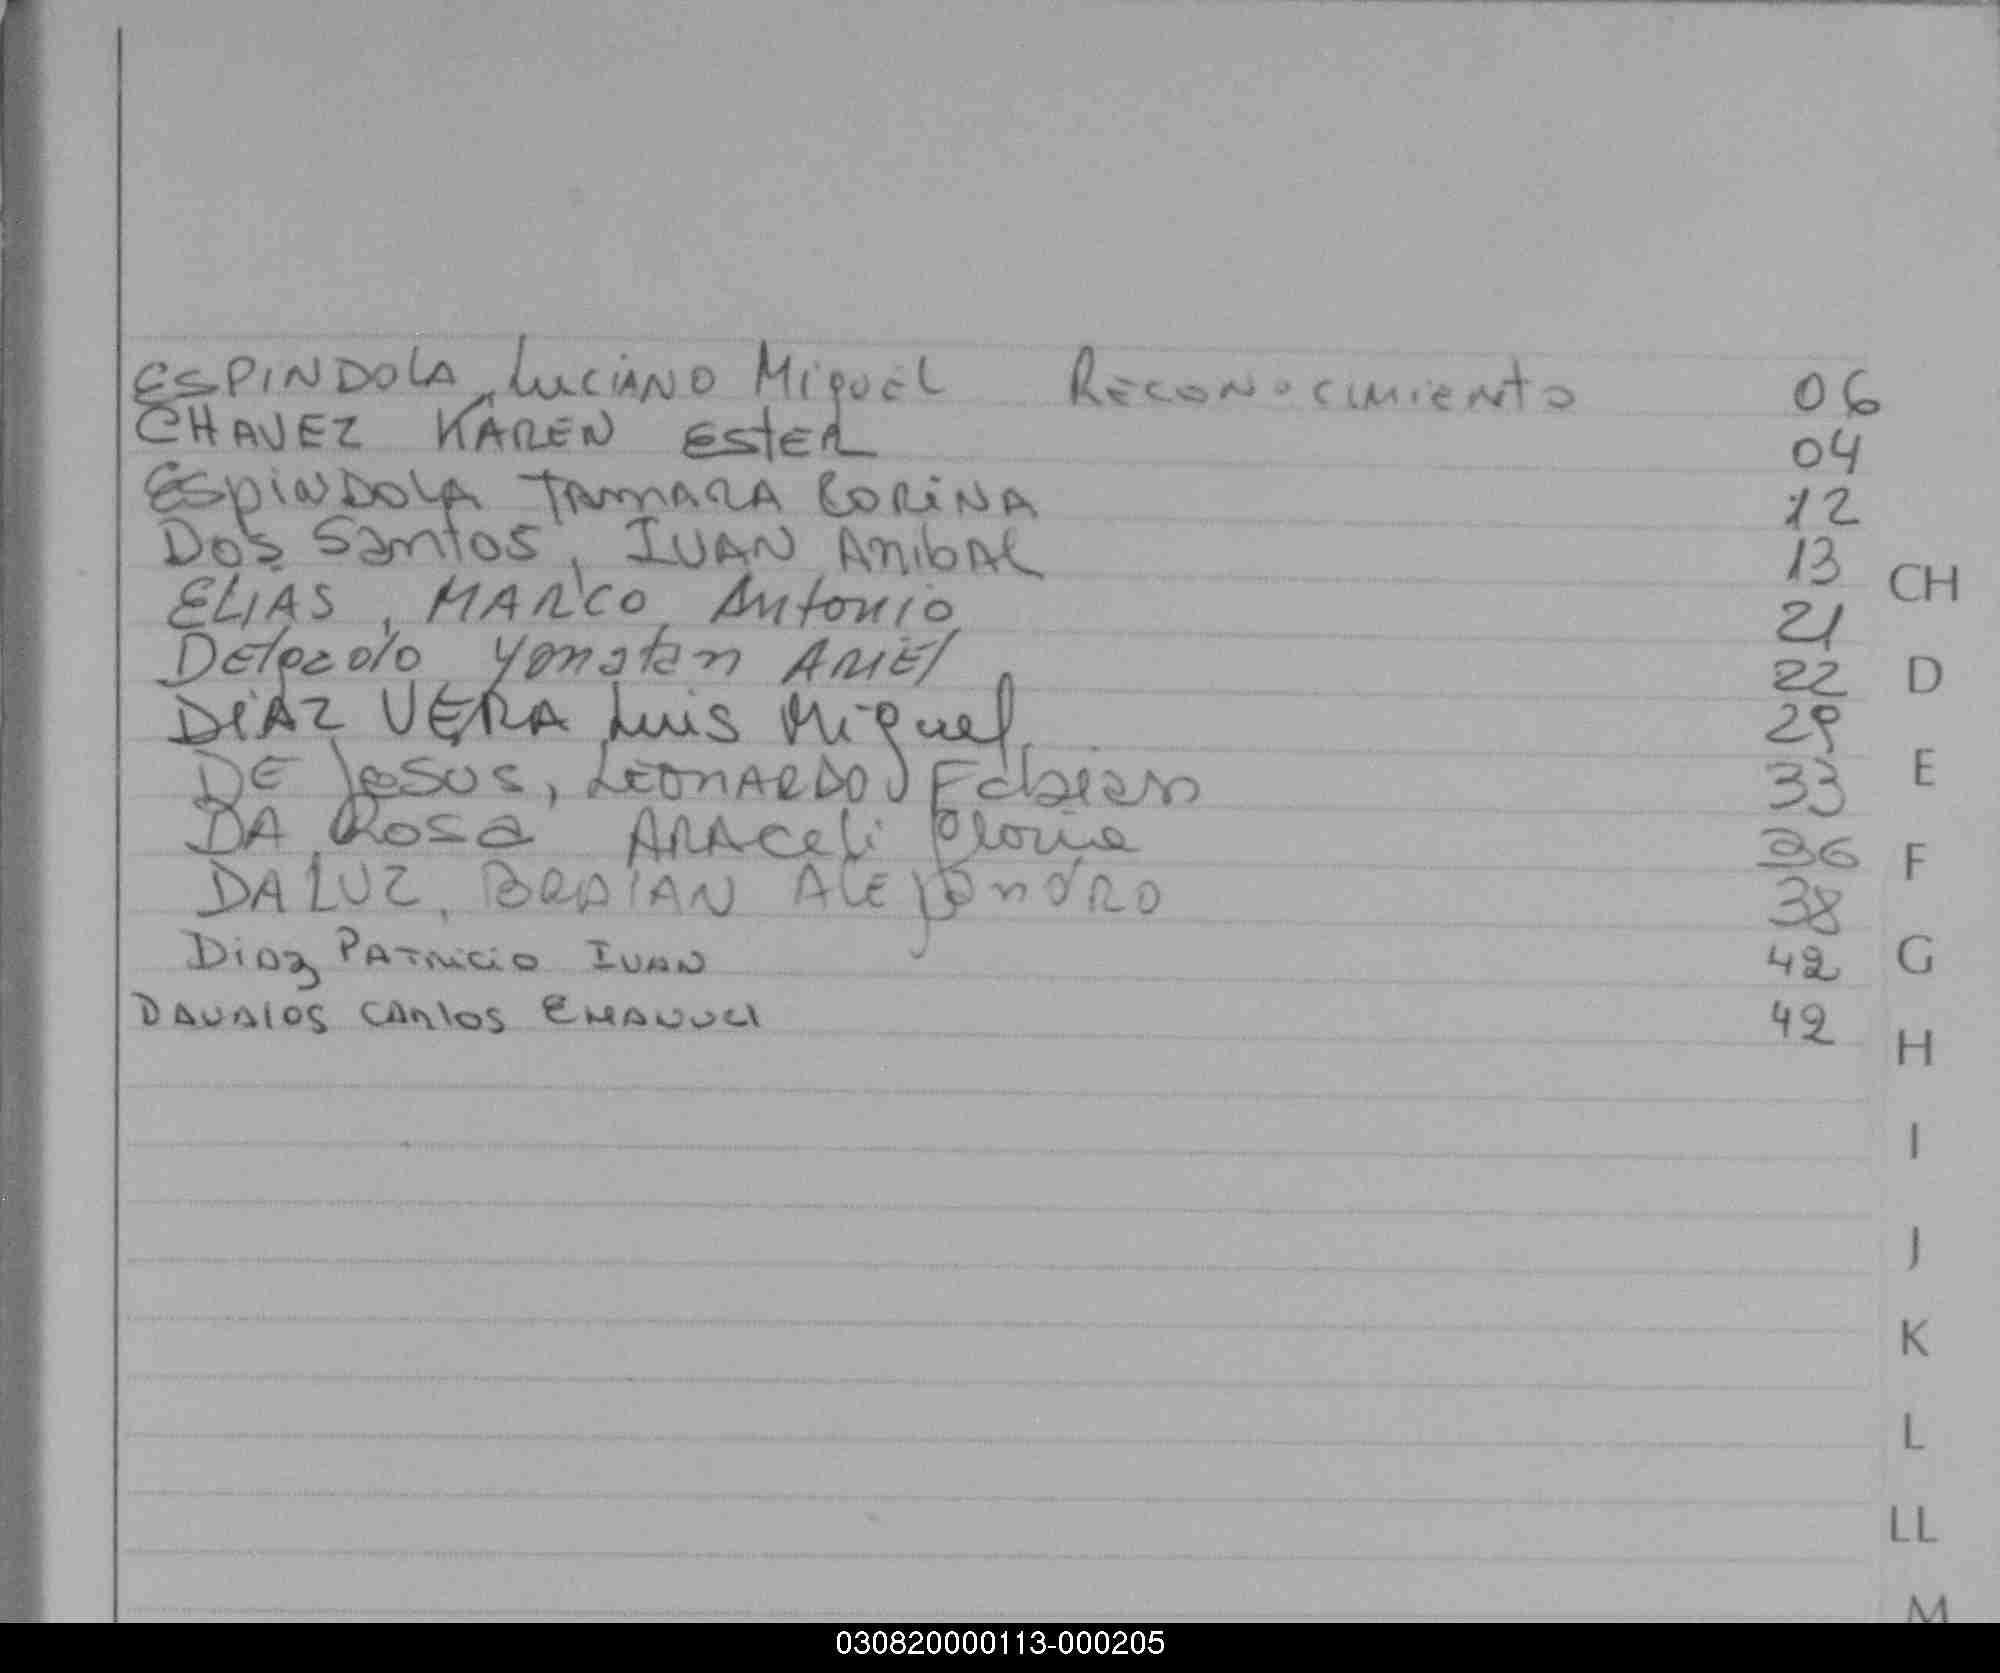 ESPINDOLA, Luciano Miguel Reconocimiento 06
CHAVEZ KAREN ESTER 04
ESPINDOLA TAMARA CORINA 12
Dos Santos, IVAN ANIBAL 13
ELIAS, MARCO Antonio 21
CH
Yonatan ARIEL 22
D
DIAZ VERA Luis Miguel 29
DE Jesus, LEONARDO Fabian 33
E
DA Rosa ARAceli 36
F
DA LUZ, BRAIAN ALEJANDRO 38
Diaz PATRICIO IVAN 42
G
DAVALOS CARLOS EMANUEL 42
H
I
J
K
L
LL
M
030820000113-000205